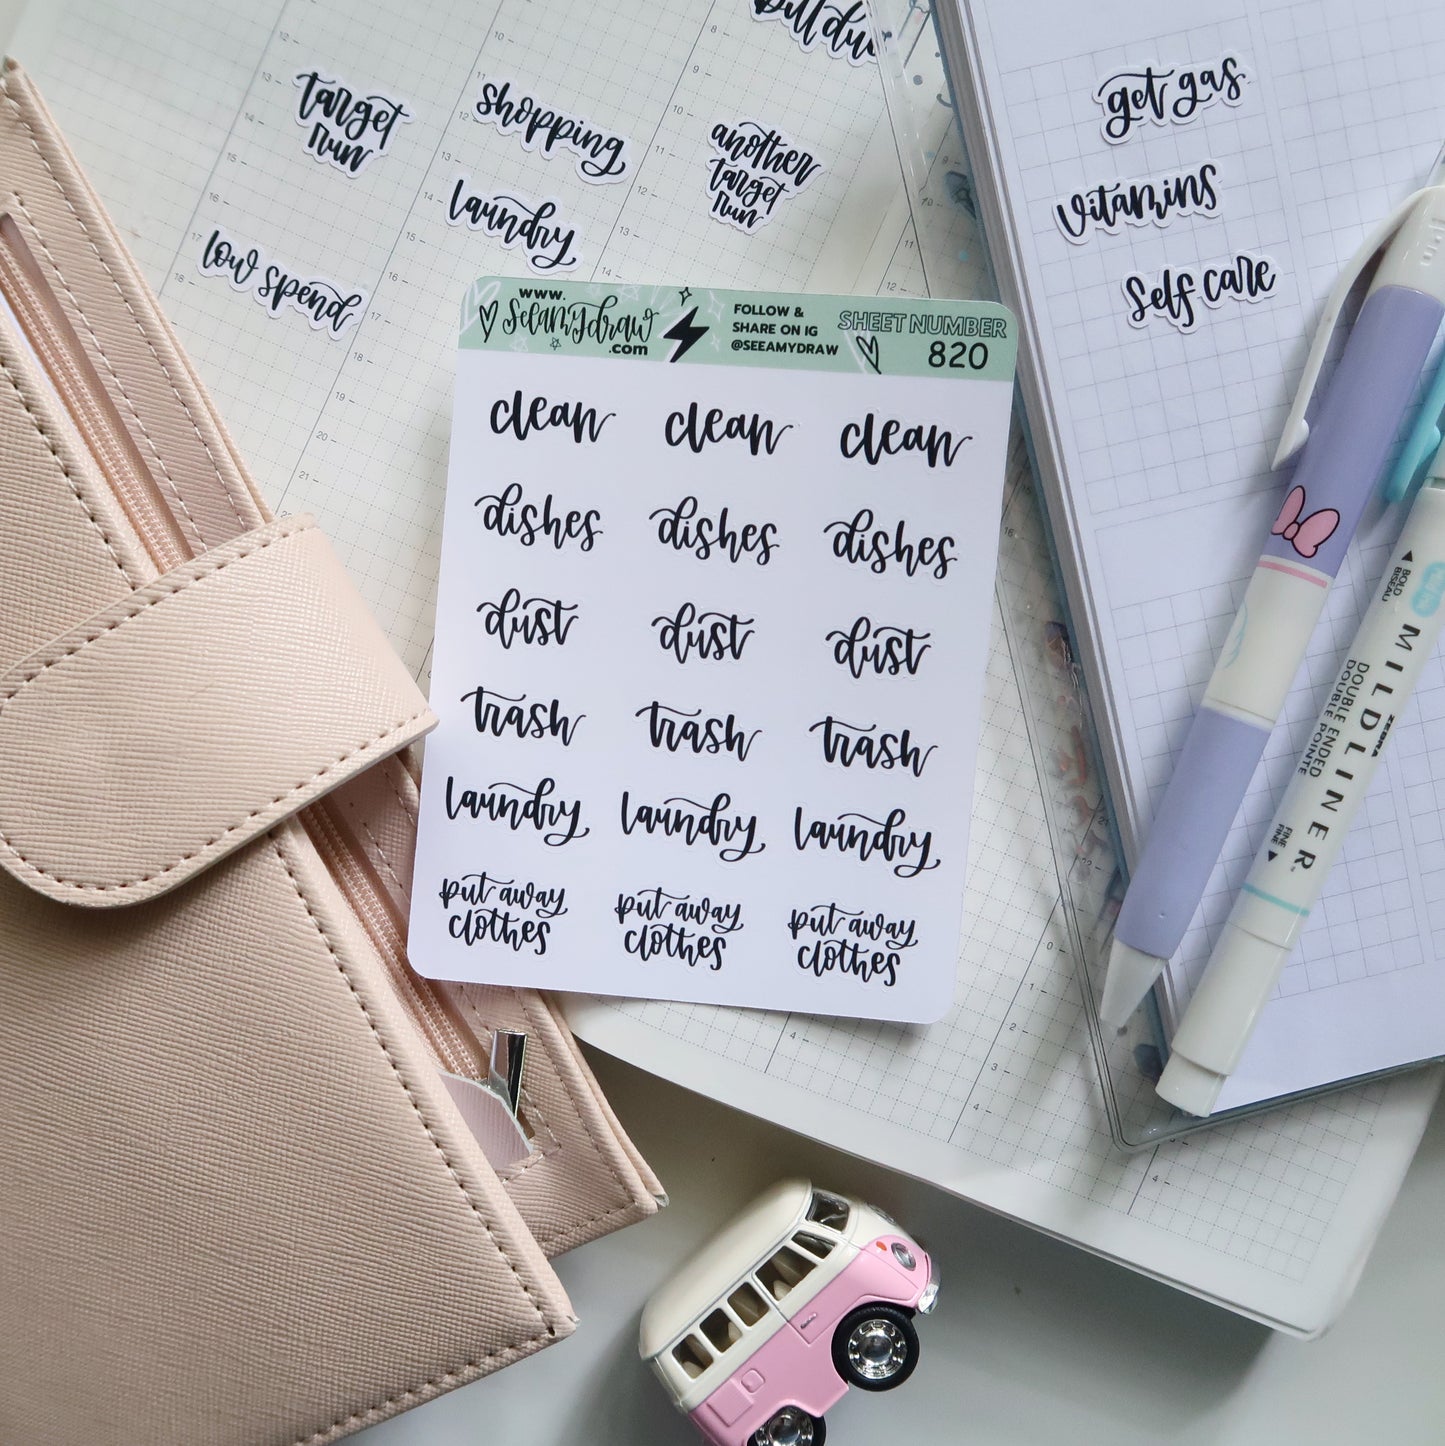 bill due
target
run
shopping
laundry
another
target
run
low spend
get gas
vitamins
self care
www.
SeeAmydraw
.com
FOLLOW &
SHARE ON IG
@SEEAMYDRAW
SHEET NUMBER
820
clean clean clean
dishes dishes dishes
dust dust dust
trash trash trash
laundry laundry laundry
put away put away put away
clothes clothes clothes
BOLD
BISEAU
ZEBRA
MILDLINER
DOUBLE ENDED
DOUBLE POINTE
FINE
FINE